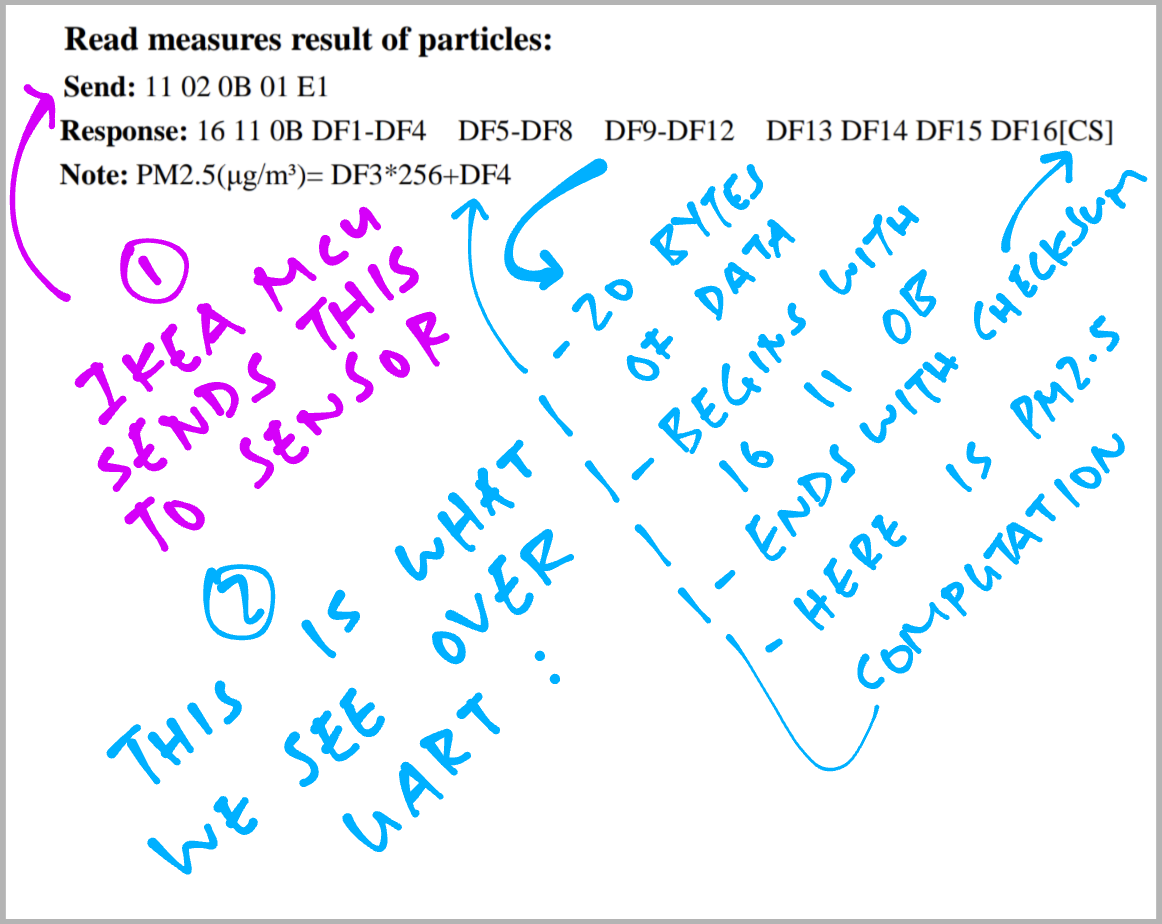 Read measures result of particles:
Send: 11 02 0B 01 E1
Response: 16 11 0B DF1-DF4 DF5-DF8 DF9-DF12 DF13 DF14 DF15 DF16[CS]
Note: PM2.5(μg/m³)= DF3*256+DF4
1
IKEA MCU
SENDS THIS
TO SENSOR
2
THIS IS WHAT
WE SEE OVER
UART :
- 20 BYTES
OF DATA
- BEGINS WITH
16 11 0B
- ENDS WITH CHECKSUM
- HERE IS PM2.5
COMPUTATION